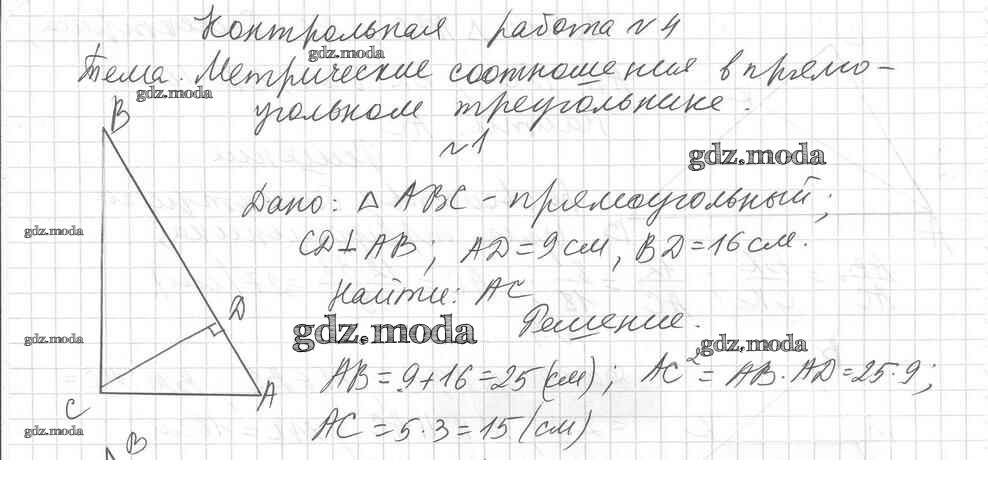 Контрольная работа №4
Тема. Метрические соотношения в прямо-
угольном треугольнике.
№1
Дано: △ ABC - прямоугольный;
CD⊥AB; AD=9см, BD=16см.
Найти: AC
Решение.
AB=9+16=25(см); AC²=AB·AD=25·9;
AC=5·3=15(см)
B
D
C
A
B
gdz.moda
gdz.moda
gdz.moda
gdz.moda
gdz.moda
gdz.moda
gdz.moda
gdz.moda